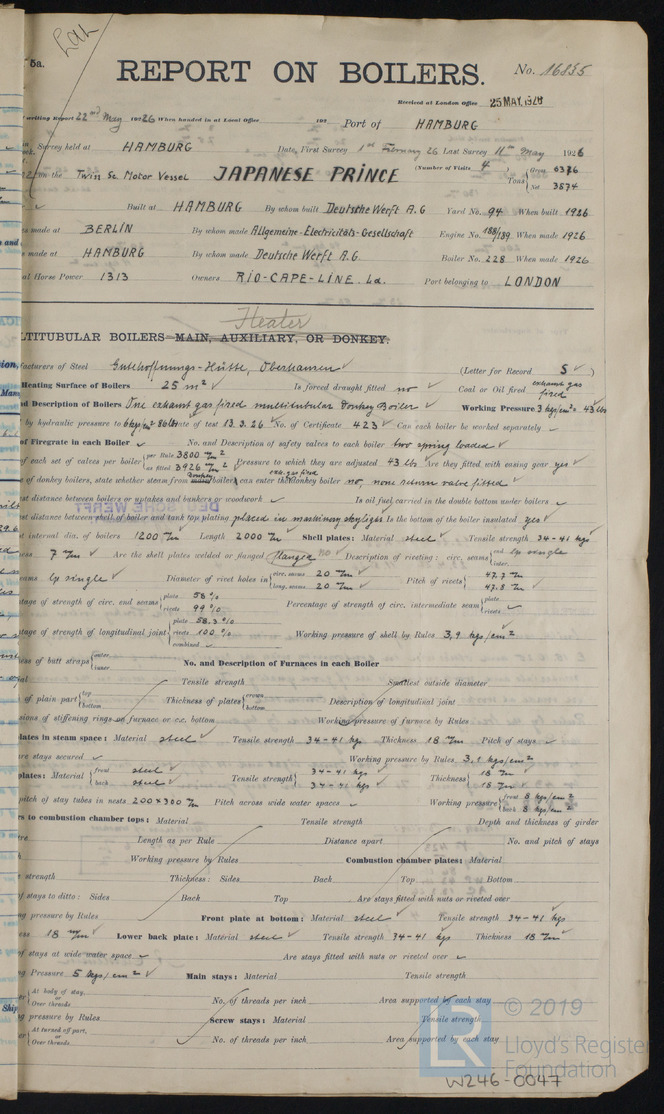 Lak
5a.
REPORT ON BOILERS.
No. 16855
Received at London Office 25 MAY. 192
writing Report 22nd May 1926 When handed in at Local Office 192 Port of HAMBURG
Survey held at HAMBURG Date, First Survey 1st February 26 Last Survey 11th May 1926
on the Twin Sc. Motor Vessel JAPANESE PRINCE (Number of Visits 4 Tons { Gross 6376 Net 3874
Built at HAMBURG By whom built Deutsche Werft A.G Yard No. 94 When built 1926
s made at BERLIN By whom made Allgemeine-Electricitäts-Gesellschaft Engine No. 188/189 When made 1926
s made at HAMBURG By whom made Deutsche Werft A.G. Boiler No. 228 When made 1926
al Horse Power 1313 Owners RIO-CAPE-LINE. Ld. Port belonging to LONDON
Heater
LTITUBULAR BOILERS MAIN, AUXILIARY, OR DONKEY.
facturers of Steel Gutehoffnungs-Hütte, Oberhausen (Letter for Record S )
Heating Surface of Boilers 25 m² Is forced draught fitted no Coal or Oil fired exhaust gas fired
d Description of Boilers One exhaust gas fired multitubular Donkey Boiler Working Pressure 3 kg/cm² = 43 lbs
by hydraulic pressure to 6 kg/cm² 86 lbs Date of test 13.3.26 No. of Certificate 423 Can each boiler be worked separately
of Firegrate in each Boiler No. and Description of safety valves to each boiler two spring loaded
of each set of valves per boiler { per Rule 3800 mm² as fitted 3926 mm² Pressure to which they are adjusted 43 lbs Are they fitted with easing gear yes
e of donkey boilers, state whether steam from main boilers can enter the donkey boiler no, none return valve fitted
st distance between boilers or uptakes and bunkers or woodwork Is oil fuel carried in the double bottom under boilers
st distance between shell of boiler and tank top plating placed in machinery skylight Is the bottom of the boiler insulated yes
st internal dia. of boilers 1200 mm Length 2000 mm Shell plates: Material steel Tensile strength 34-41 kgs
ess 7 mm Are the shell plates welded or flanged flanged no Description of riveting: circ. seams { end lp single inter.
eams lp single Diameter of rivet holes in { circ. seams 20 mm long. seams 20 mm Pitch of rivets { 47.7 mm 47.8 mm
tage of strength of circ. end seams { plate 58 % rivets 99 % Percentage of strength of circ. intermediate seam { plate rivets
tage of strength of longitudinal joint { plate 58.3 % rivets 100 % combined Working pressure of shell by Rules 3,9 kgs/cm²
ess of butt straps { outer inner No. and Description of Furnaces in each Boiler
Tensile strength Smallest outside diameter
of plain part { top bottom Thickness of plates { crown bottom Description of longitudinal joint
sions of stiffening rings on furnace or c.c. bottom Working pressure of furnace by Rules
lates in steam space: Material steel Tensile strength 34-41 kg Thickness 18 mm Pitch of stays
re stays secured Working pressure by Rules 3,1 kgs/cm²
plates: Material { front steel back steel Tensile strength { 34-41 kgs 34-41 kgs Thickness { 18 mm 18 mm
pitch of stay tubes in nests 200×300 mm Pitch across wide water spaces Working pressure { front 8 kgs/cm² back 8 kgs/cm²
rs to combustion chamber tops: Material Tensile strength Depth and thickness of girder
re Length as per Rule Distance apart No. and pitch of stays
Working pressure by Rules Combustion chamber plates: Material
e strength Thickness: Sides Back Top Bottom
f stays to ditto: Sides Back Top Are stays fitted with nuts or riveted over
ng pressure by Rules Front plate at bottom: Material steel Tensile strength 34-41 kgs
ess 18 mm Lower back plate: Material steel Tensile strength 34-41 kg Thickness 18 mm
of stays at wide water space Are stays fitted with nuts or riveted over
g Pressure 5 kgs/cm² Main stays: Material Tensile strength
er { At body of stay, or Over threads No. of threads per inch Area supported by each stay
g pressure by Rules Screw stays: Material Tensile strength
er { At turned off part, or Over threads No. of threads per inch Area supported by each stay
© 2019
Lloyd's Register
Foundation
W246-0047